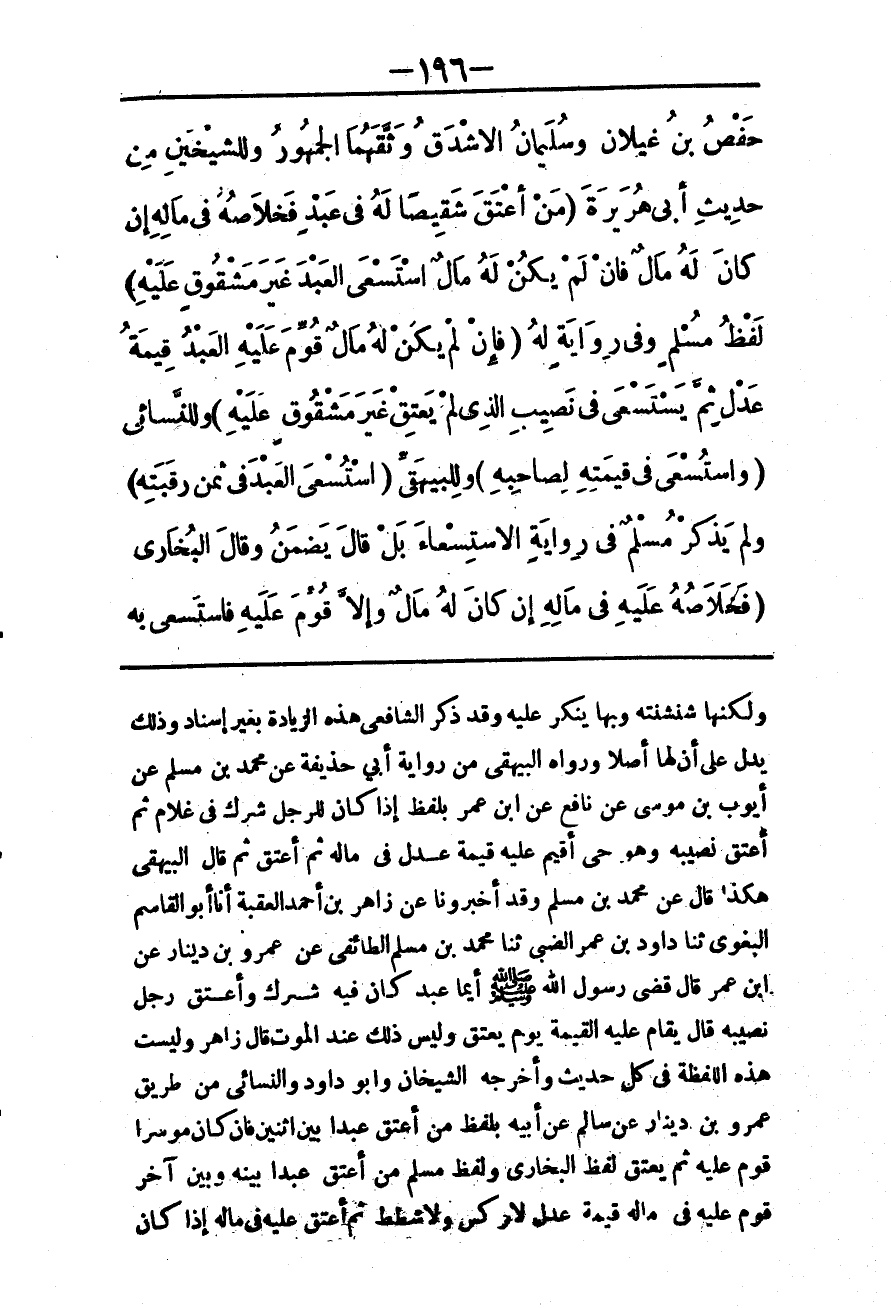 —١٩٦—
حَفْصُ بنُ غيلان وسُلَيمانُ الاشْدَقُ وَثَّقَهُمَا الجمهُورُ وللشيْخَينِ مِن
حديثِ أبى هُرَيرَةَ (مَنْ أعْتَقَ شَقِيصًا لَهُ فى عَبْدٍ فَخلاَصهُ فى مَالِهِ إن
كانَ لَهُ مَالٌ فانْ لَمْ يكُنْ لَهُ مَالٌ اسْتَسْعَى العَبْدَ غَيرَ مَشْقُوقٍ عَلَيْهِ)
لَفْظُ مُسْلمٍ وفى رِوَايَةٍ لهُ (فإِنْ لمْ يكَنْ لهُ مَالٌ قُوِّمَ عَلَيْهِ العَبْدُ قِيمَةُ
عَدْلٍ ثمَّ يَسْتَسْعَى فى نَصِيبِ الذى لمْ يَعتِقْ غَيرَ مَشْقُوقٍ عَلَيْهِ) وللنَّسائى
(واستُسْعَى فى قيمَتِهِ لِصاحِبِهِ) وللبيهَقىِّ (استُسْعىَ العَبْدَ فى ثمن رقَبَتِهِ)
ولم يَذكَرْ مُسْلمٌ فى رِوايةِ الاستِسْعاءَ بَلْ قالَ يَضمَنُ وقالَ البُخَارى
(فَخَلاَصُهُ عَلَيهِ فى مَالِهِ إن كانَ لهُ مَالٌ وإلاَّ قُوِّمَ عَلَيهِ فاستَسعى به
ولكنها شنشنته وبها ينكر عليه وقد ذكر الشافعى هذه الزيادة بغير إسناد وذلك
يدل على أن لها أصلا ورواه البيهقى من رواية أبي حذيفة عن محمد بن مسلم عن
أيوب بن موسى عن نافع عن ابن عمر بلفظ إذا كان للرجل شرك فى غلام ثم
أعتق نصيبه وهو حى أقيم عليه قيمة عـدل فى ماله ثم أعتق ثم قال البيهقى
هكذا قال عن محمد بن مسلم وقد أخبرونا عن زاهر بن أحمد العقبة أنا أبو القاسم
البغوى ثنا داود بن عمر الضبى ثنا محمد بن مسلم الطائفى عن عمرو بن دينار عن
ابن عمر قال قضى رسول الله ﷺ أيما عبد كان فيه شـرك وأعـتق رجل
نصيبه قال يقام عليه القيمة يوم يعتق وليس ذلك عند الموت قال زاهر وليست
هذه اللفظة فى كل حديث وأخرجه الشيخان وابو داود والنسائى من طريق
عمرو بن دينار عن سالم عن أبيه بلفظ من أعتق عبدا بين اثنين فان كان موسرا
قوم عليه ثم يعتق لفظ البخارى ولفظ مسلم من أعتق عبدا بينه وبين آخر
قوم عليه فى ماله قيمة عدل لاوكس ولاشطط ثم أعتق عليه فى ماله إذا كان